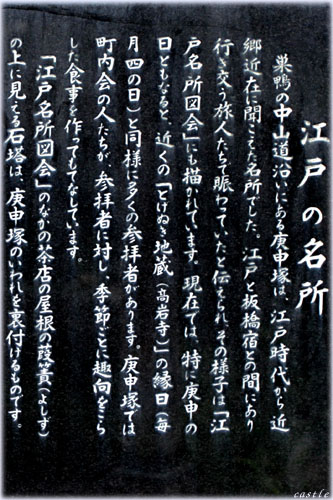 江戸の名所
巣鴨の中山道沿いにある庚申塚は、江戸時代から近
郷近在に聞こえた名所でした。江戸と板橋宿との間にあり
行き交う旅人たちで賑わっていたと伝えられ、その様子は「江
戸名所図会」にも描かれています。現在では、特に庚申の
日ともなると、近くの「とげぬき地蔵（高岩寺）」の縁日（毎
月四の日）と同様に多くの参拝者があります。庚申塚では
町内会の人たちが、参拝者に対し、季節ごとに趣向をこら
した食事を作ってもてなしています。
「江戸名所図会」のなかの茶店の屋根の葭簀（よしず）
の上に見てる石塔は、庚申塚のいわれを裏付けるものです。
castle